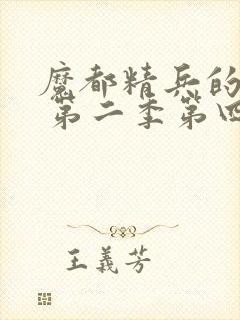 魔都精兵的
第二季第四
王義芳